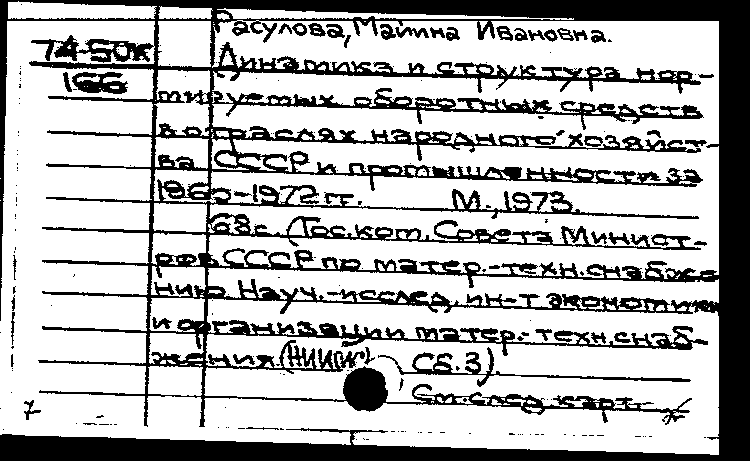 Расулова, Майина Ивановна.
74-50к
166
Динамика и структура нор-
мируемых оборотных средств
в отраслях народного хозяйст-
ва СССР и промышленности за
1960-1972 гг. М., 1973.
68с. (Гос. ком. Совета Минист-
ров СССР по матер.-техн. снабже
нию. Науч.-исслед. ин-т экономики
и организации матер.-техн. снаб-
жения. Сб.3).
См. след карт.
7